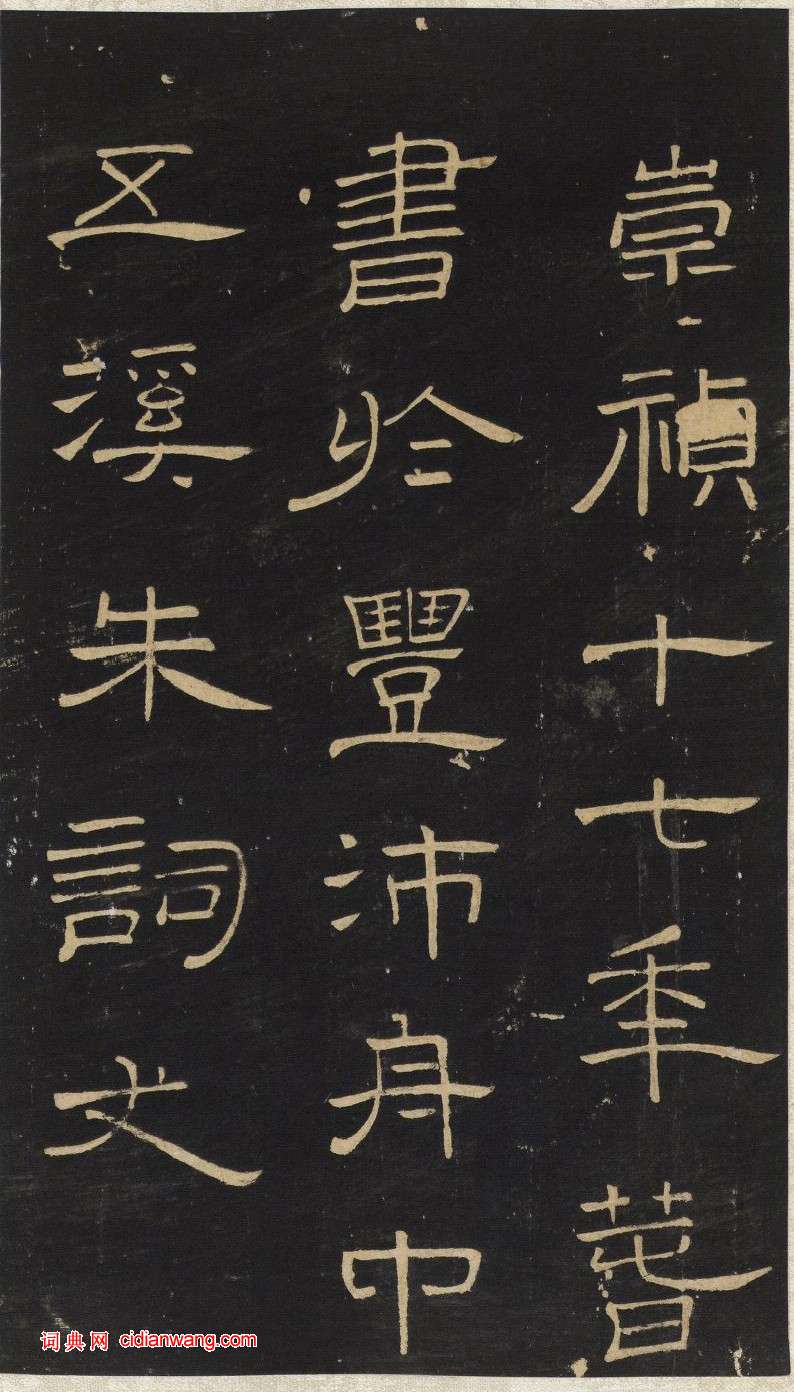 崇禎十七年萅
書於豐沛舟中
五溪朱詞文
词典网 cidianwang.com